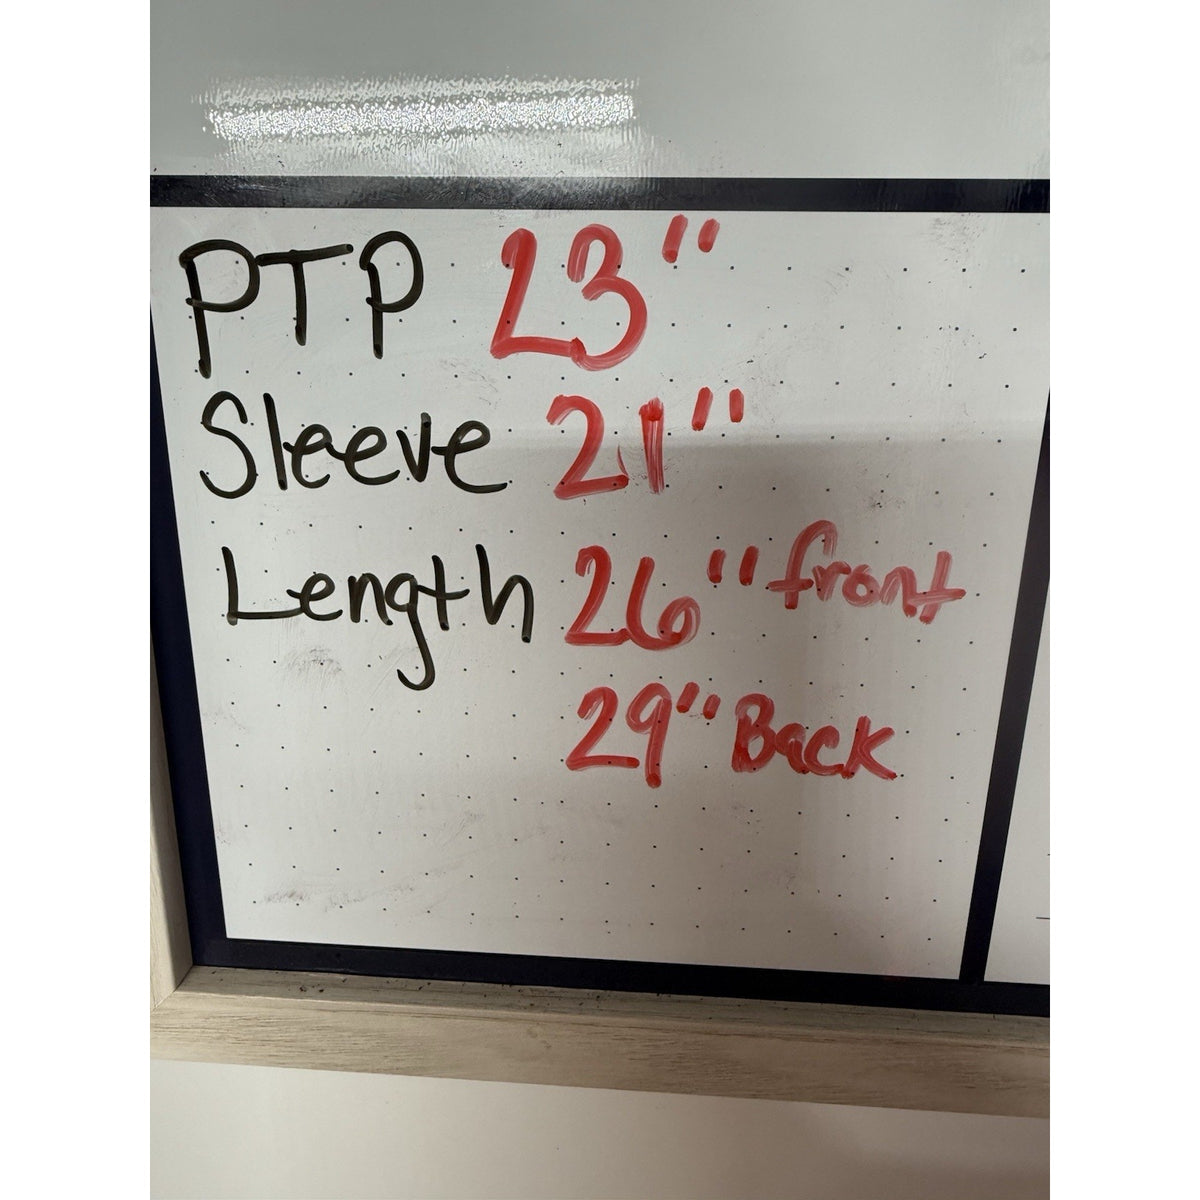 PTP 23"
Sleeve 21"
Length 26" front
29" Back